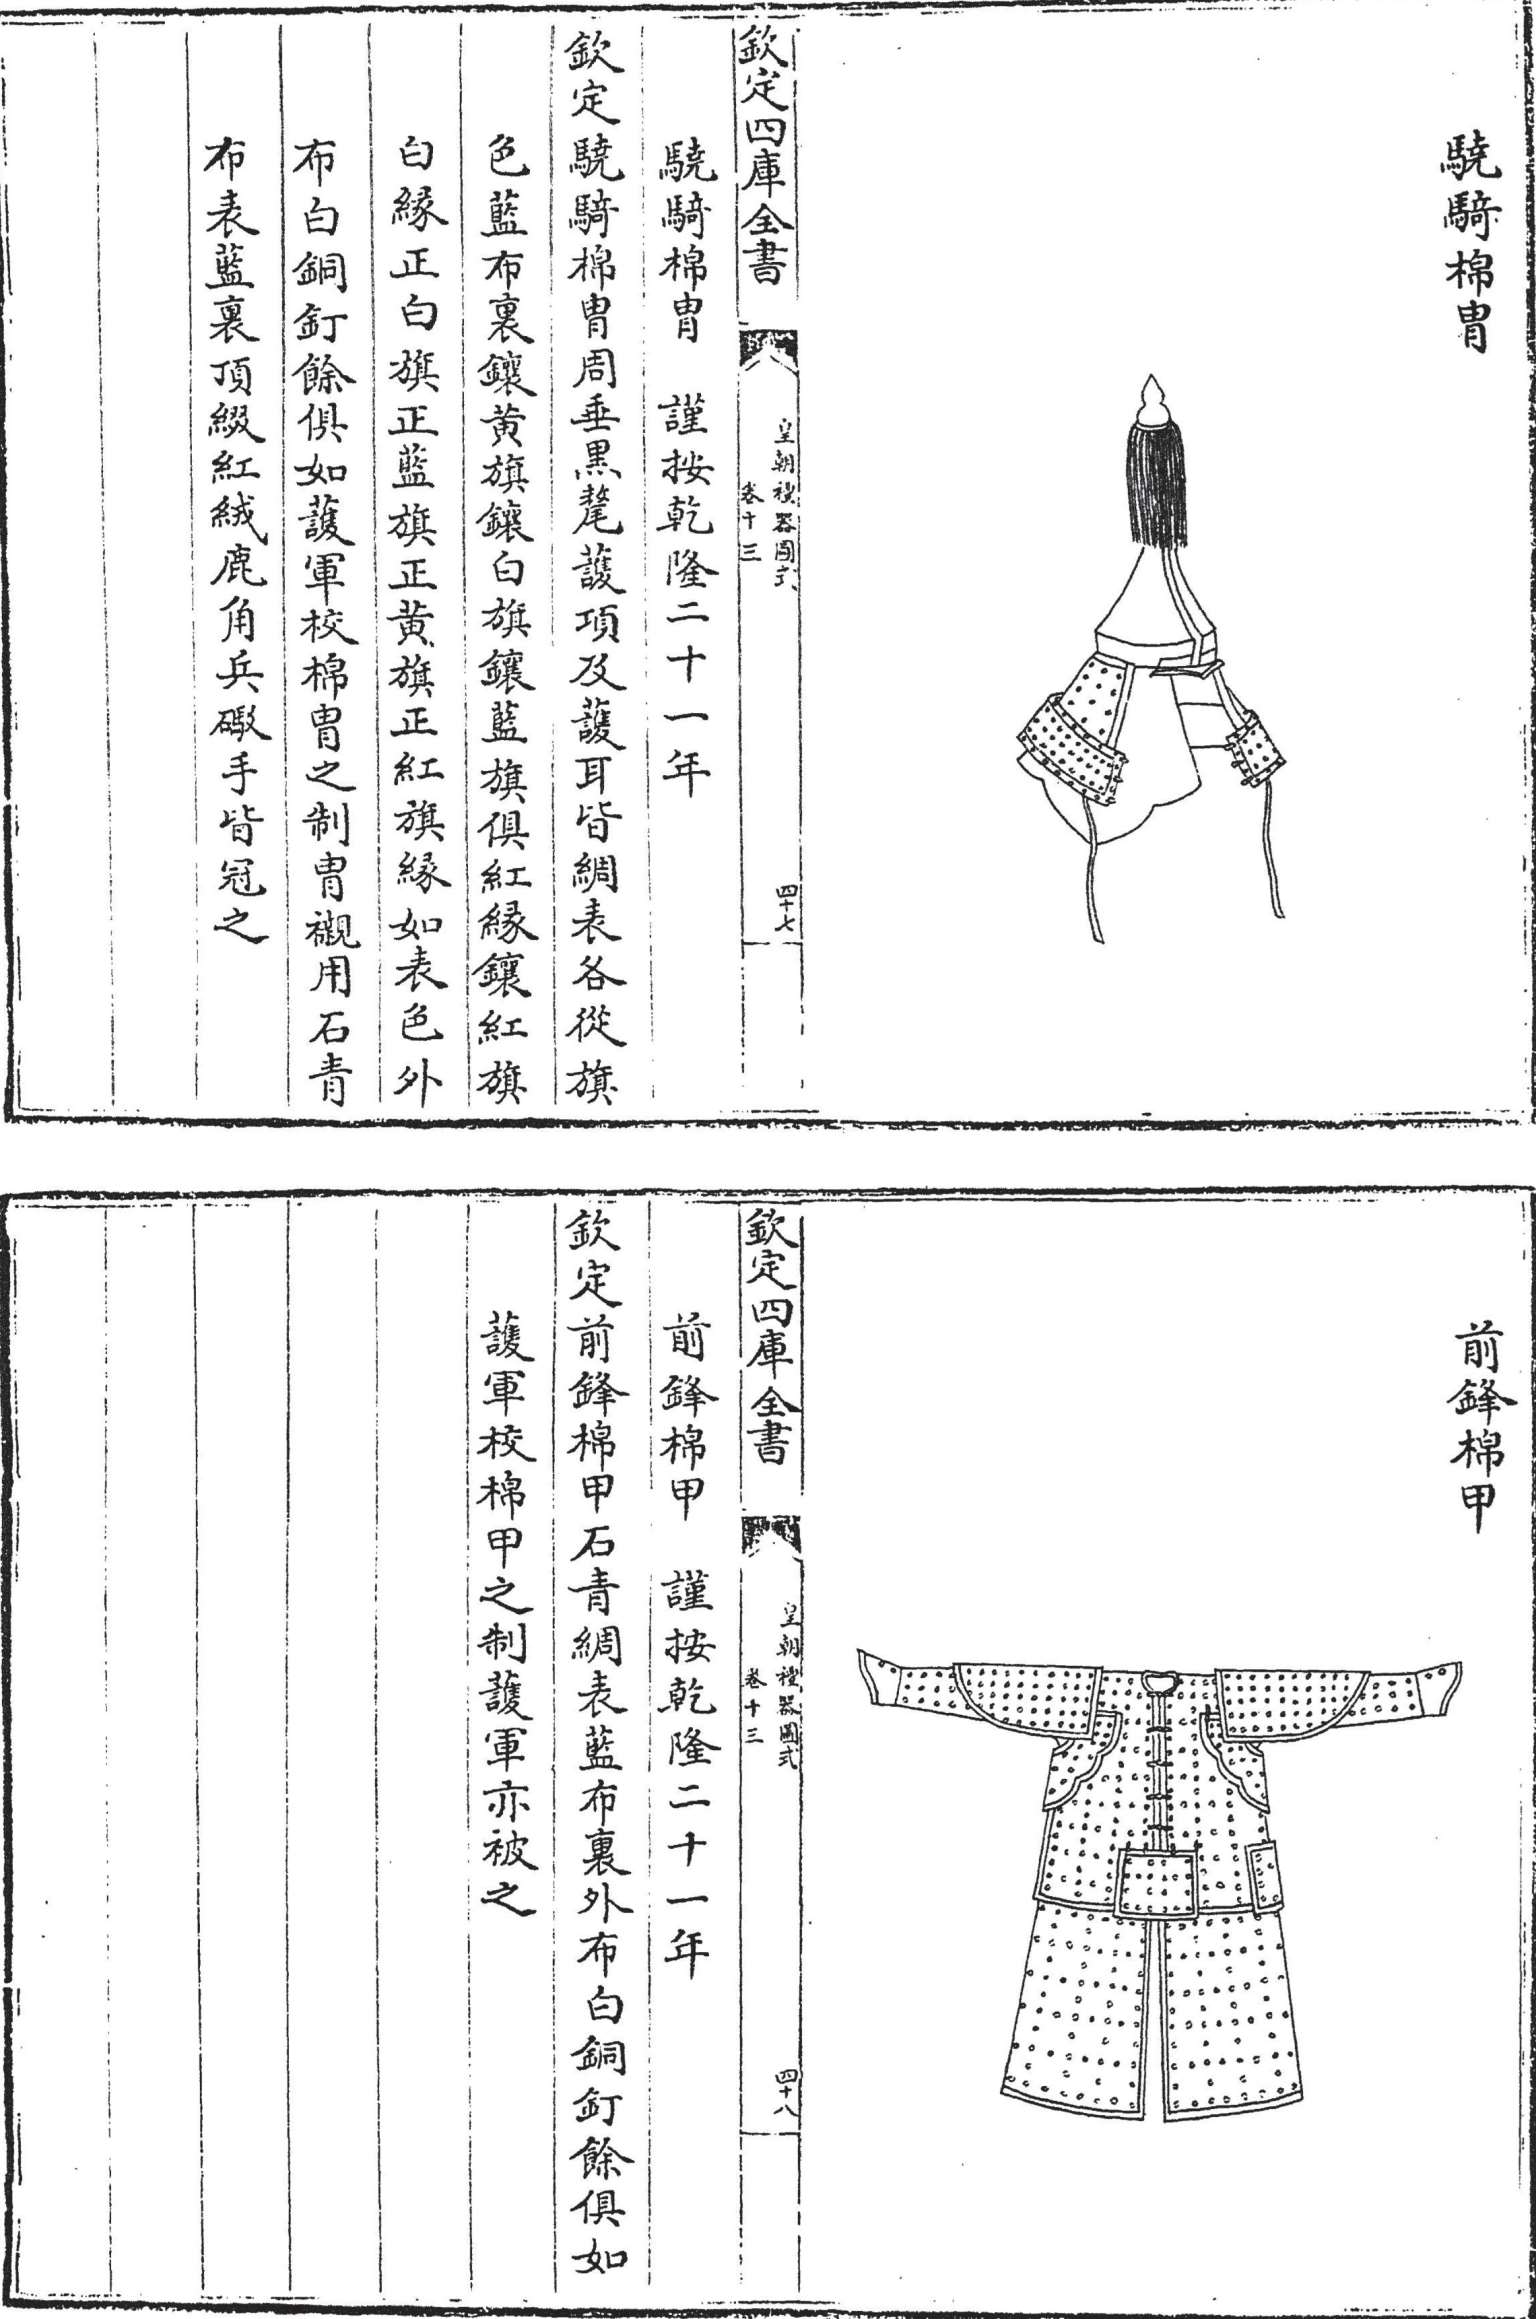 驍騎棉冑
欽定四庫全書
皇朝禮器圖式
卷十三
四十七
驍騎棉冑　謹按乾隆二十一年
欽定驍騎棉冑周垂黒氂護項及護耳皆綢表各從旗
色藍布裏鑲黄旗鑲白旗鑲藍旗俱紅縁鑲紅旗
白縁正白旗正藍旗正黄旗正紅旗縁如表色外
布白銅釘餘俱如護軍校棉冑之制冑襯用石青
布表藍裏頂綴紅絨鹿角兵礮手皆冠之
前鋒棉甲
欽定四庫全書
皇朝禮器圖式
卷十三
四十八
前鋒棉甲　謹按乾隆二十一年
欽定前鋒棉甲石青綢表藍布裏外布白銅釘餘俱如
護軍校棉甲之制護軍亦被之